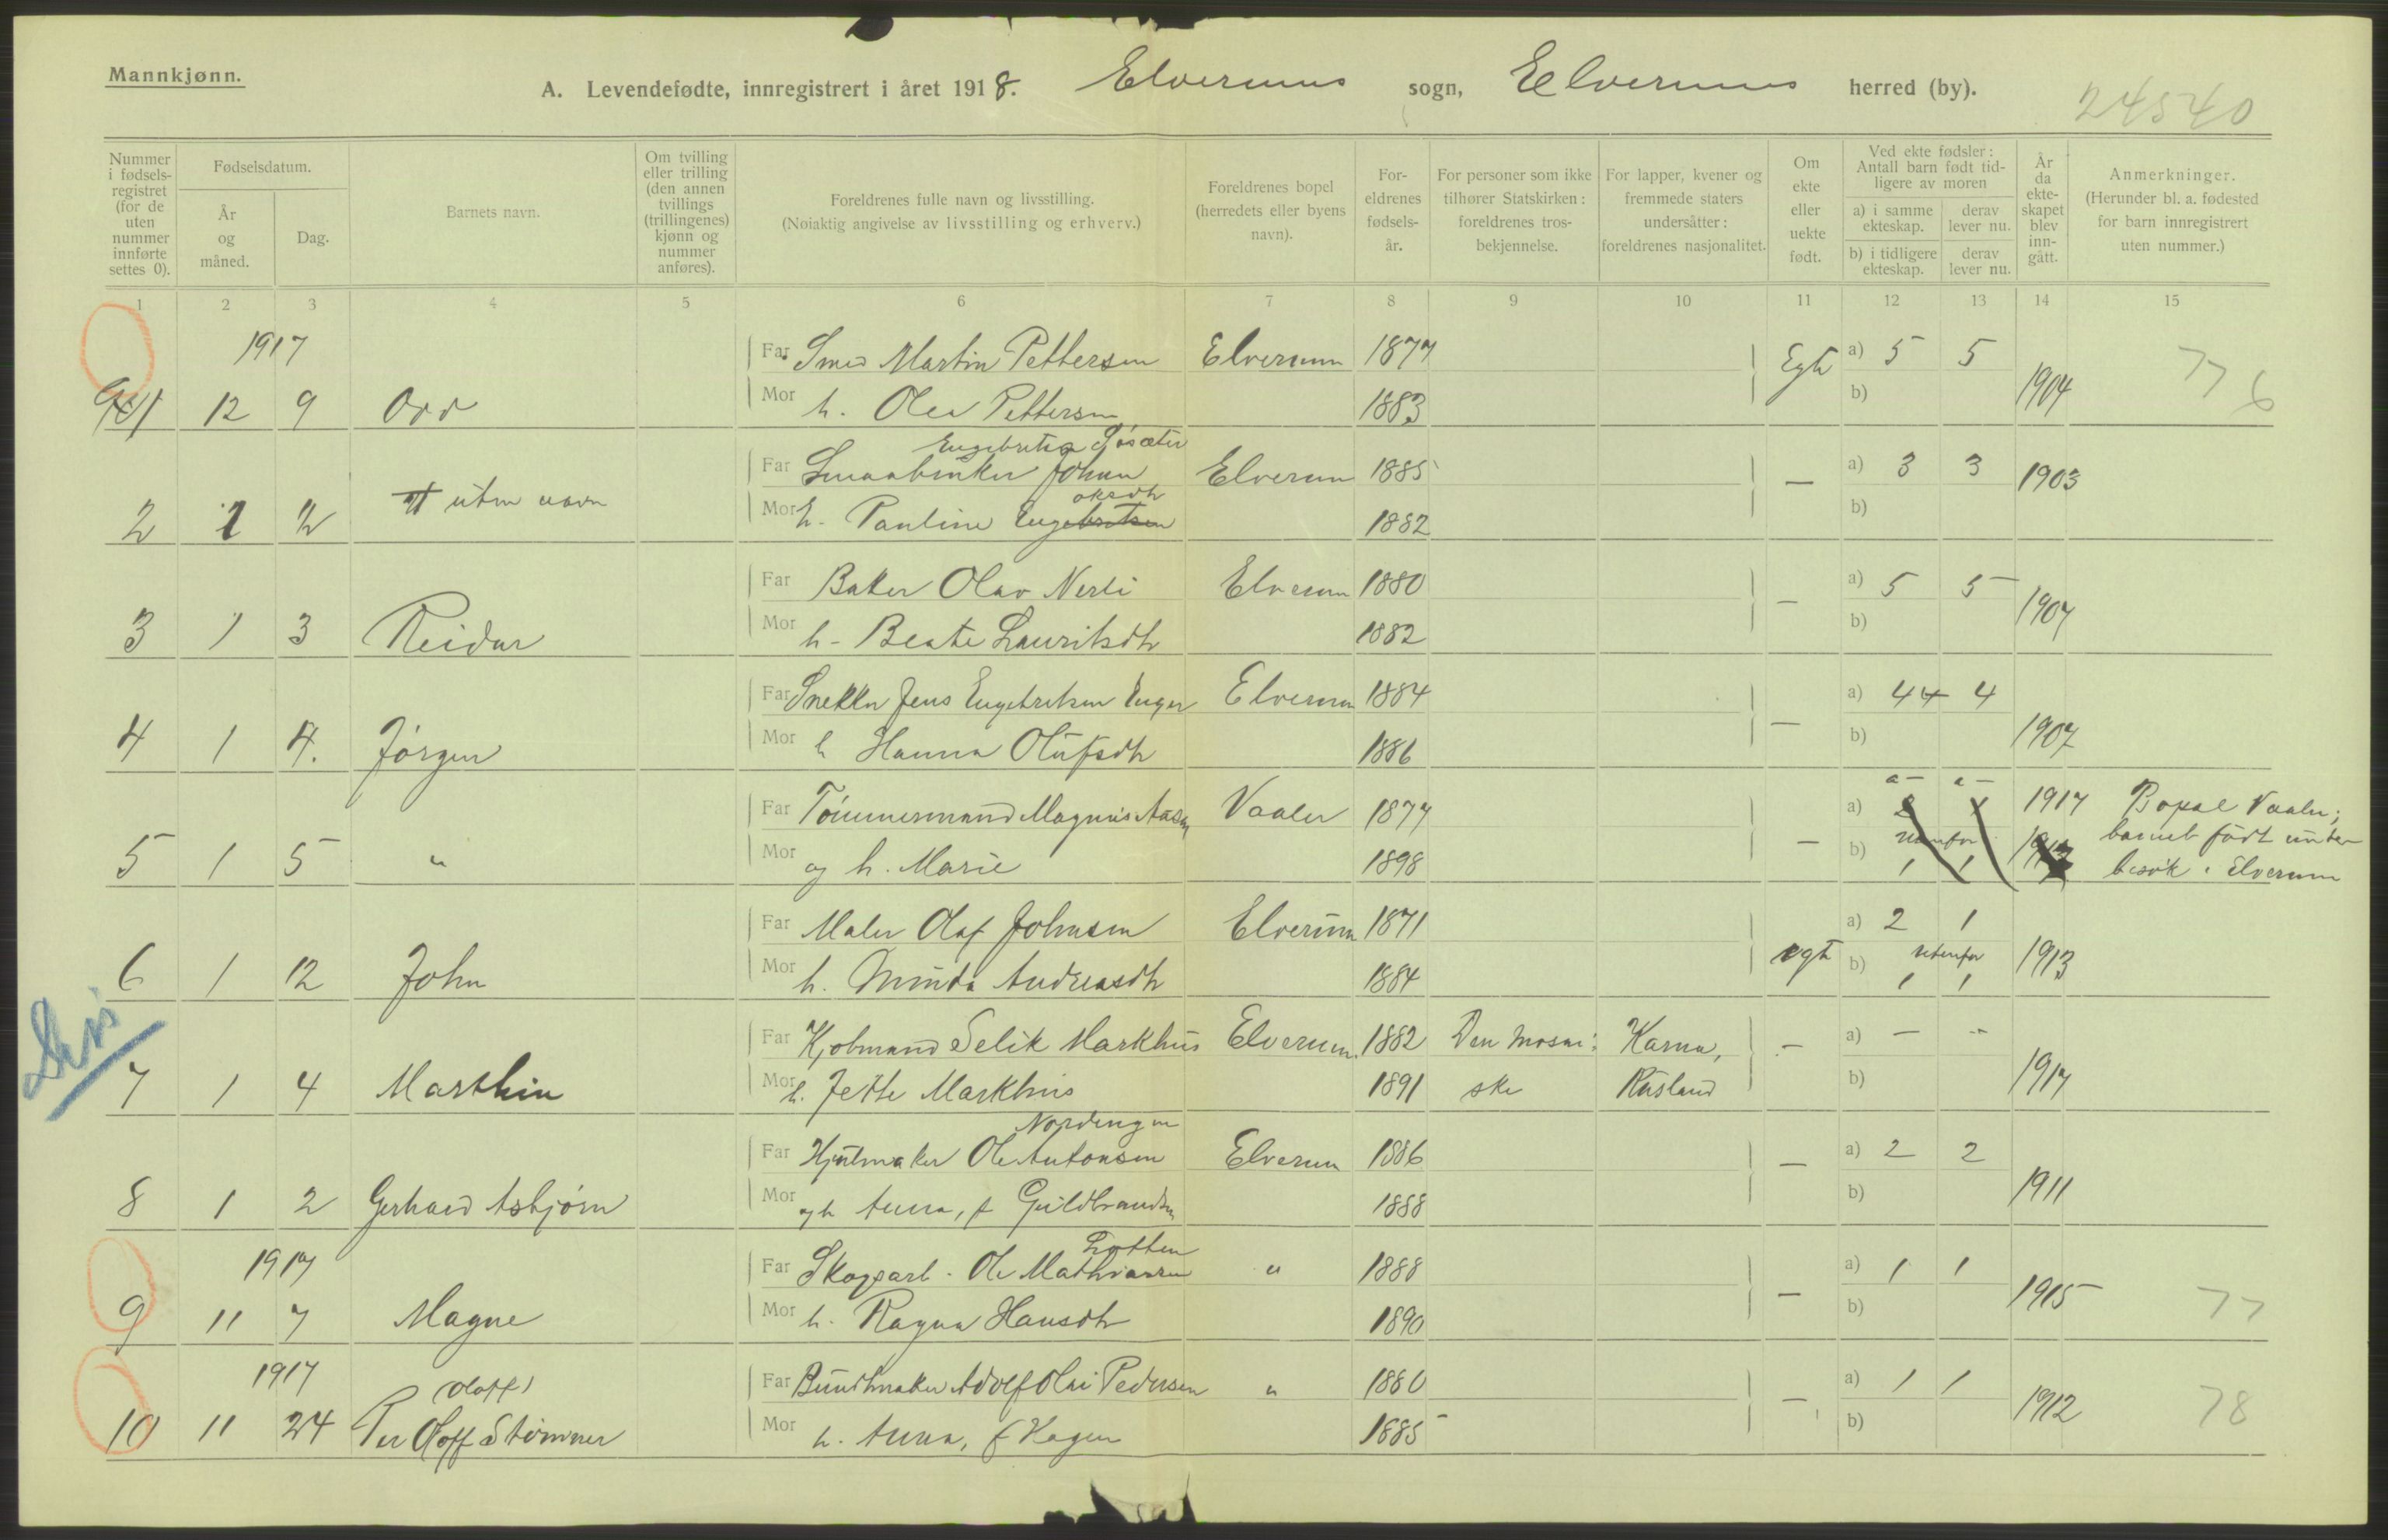 Mannkjønn.
A. Levendefødte, innregistrert i året 1918. Elverums sogn, Elverums herred (by). 24540
Nummer i fødselsregistret (for de uten nummer innførte settes 0).
Fødselsdatum.
År og måned.
Dag.
Barnets navn.
Om tvilling eller trilling (den annen tvillings (trillingenes) kjønn og nummer anføres).
Foreldrenes fulle navn og livsstilling.
(Nøiaktig angivelse av livsstilling og erhverv.)
Foreldrenes bopel (herredets eller byens navn).
Foreldrenes fødselsår.
For personer som ikke tilhører Statskirken: foreldrenes trosbekjennelse.
For lapper, kvener og fremmede staters undersåtter: foreldrenes nasjonalitet.
Om ekte eller uekte født.
Ved ekte fødsler: Antall barn født tidligere av moren
a) i samme ekteskap. derav lever nu.
b) i tidligere ekteskap. derav lever nu.
År da ekteskapet blev inngått.
Anmerkninger.
(Herunder bl. a. fødested for barn innregistrert uten nummer.)
1 2 3 4 5 6 7 8 9 10 11 12 13 14 15
1917 Far Smed Martin Pettersen Elverum 1877 Egte a) 5 5
12 9 Odd Mor h. Olea Pettersen 1883 b) 1904 776
Engebretsen
Far Johan Elverum 1885 — a) 3 3 1903
2 1 2 uten navn Mor h. Pauline Engebretsen 1882 b)
Far Baker Olav Nerli Elverum 1880 — a) 5 5
3 1 3 Reidar Mor h. Beate Lauritsdtr 1882 b) 1907
Far Snekker Jens Engebretsen Enger Elverum 1884 — a) 4 4 4
4 1 4. Jörgen Mor h Hanna Olufsdtr 1886 b) 1907
a — a —
Far Tömmermand Magnus Aasen Vaaler 1877 — a) 1917 Bopæl Vaaler;
5 1 5 " Mor og h. Marie 1898 b) utenfor barnet født under
1 1 besök i Elverum
Far Maler Olaf Johnsen Elverum 1871 egte a) 2 1
6 1 12 John Mor h. Minda Andreasdtr 1884 b) utenfor 1913
1 1
Far Kjøbmand Selik Markhus Elverum. 1882 Den mosai: Kasna, — a) — —
7 1 4 Marthin Mor h. Jette Markhus 1891 ske Rusland b) 1917
Nordengen
Far Hjulmaker Ole Antonsen Elverum 1886 — a) 2 2
8 1 2 Gerhard Asbjørn Mor og h Anna, f Guldbrandsen 1888 b) 1911
1917 Far Skogsarb. Ole Mathiassen " 1888 — a) 1 1
9 11 7 Magne Mor h. Ragna Hansdtr 1890 b) 1915 77
1917 (Olaff) Far Buntmaker Adolf Olai Pedersen " 1880 — a) 1 1
10 11 24 Per Oloff Stømner Mor h. Anna, f Hagen 1885 b) 1912 78